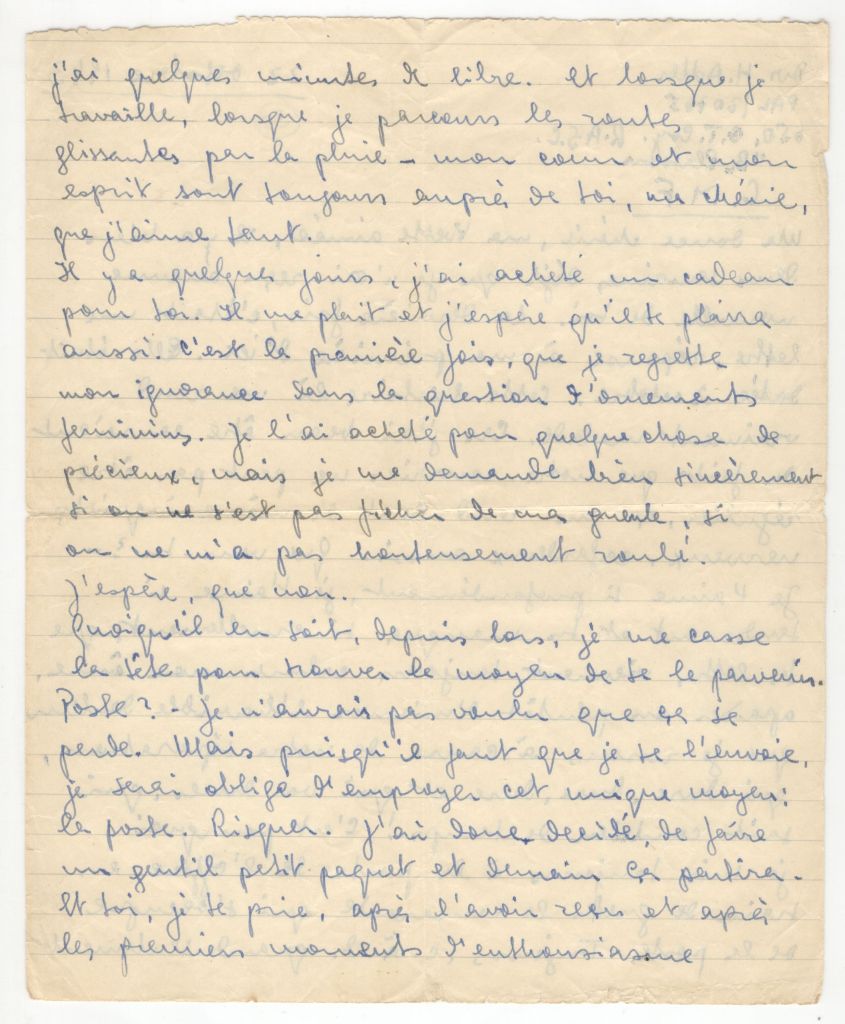 j'ai quelques minutes de libre. Et lorsque je
travaille, lorsque je parcours les routes
glissantes par la pluie – mon cœur et mon
esprit sont toujours auprès de toi, ma chérie,
que j'aime tant.
Il y a quelques jours, j'ai acheté un cadeau
pour toi. Il me plait et j'espère qu'il te plaira
aussi. C'est la première fois, que je regrette
mon ignorance dans la question d'ornements
feminins. Je l'ai acheté pour quelque chose de
précieux, mais je me demande bien sincèrement
si on ne s'est pas ficher de ma gueule, si
on ne m'a pas honteusement roulé.
J'espère, que non.
Quoiqu'il en soit, depuis lors, je me casse
la tête pour trouver le moyen de te le parvenir.
Poste? – Je n'aurais pas voulu que ça se
perde. Mais puisqu'il faut que je te l'envoie,
je serai obligé d'employer cet unique moyen:
la poste. Risquer. J'ai donc decidé, de faire
un gentil petit paquet et demain ça partira.
Et toi, je te prie, après l'avoir reçu et après
les premiers moments d'enthousiasme